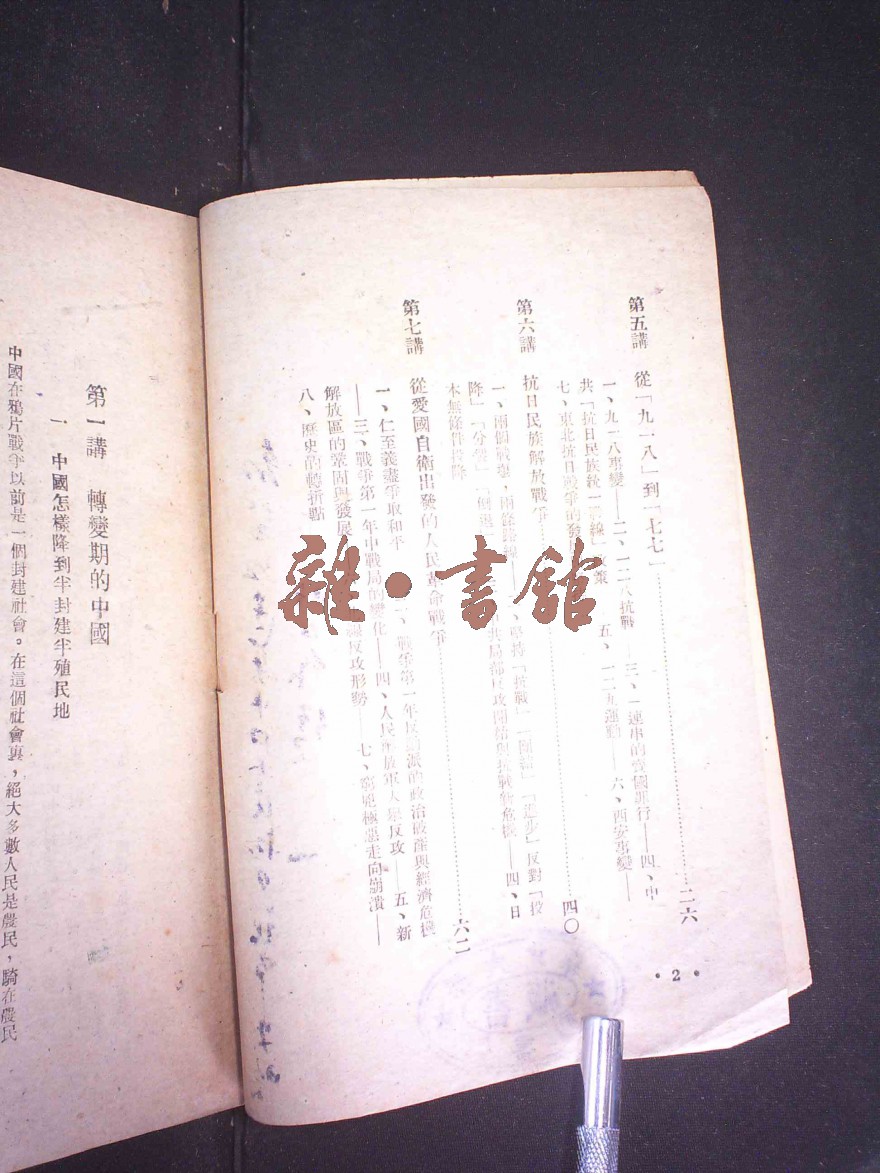 第五講 從「九一八」到「七七」……二六
一、九一八事變——二、一二八抗戰——三、一連串的賣國罪行——四、中
共「抗日民族統一戰線」政策 五、一二九運動——六、西安事變——
七、東北抗日戰爭的發
第六講 抗日民族解放戰爭……四〇
一、兩個戰場,兩條路線 、堅持「抗戰」「團結」「進步」反對「投
降」「分裂」「倒退 中共局部反攻開始與抗戰新危機——四、日
本無條件投降
第七講 從愛國自衛出發的人民革命戰爭……六二
一、仁至義盡爭取和平 、戰爭第一年反動派的政治破產與經濟危機
——三、戰爭第一年中戰局的變化——四、人民解放軍大舉反攻——五、新
解放區的鞏固與發展 反攻形勢——七、窮兇極惡走向崩潰——
八、歷史的轉折點
• 2 •
第一講 轉變期的中國
一 中國怎樣降到半封建半殖民地
中國在鴉片戰爭以前是一個封建社會。在這個社會裏,絕大多數人民是農民,騎在農民
雜•書館